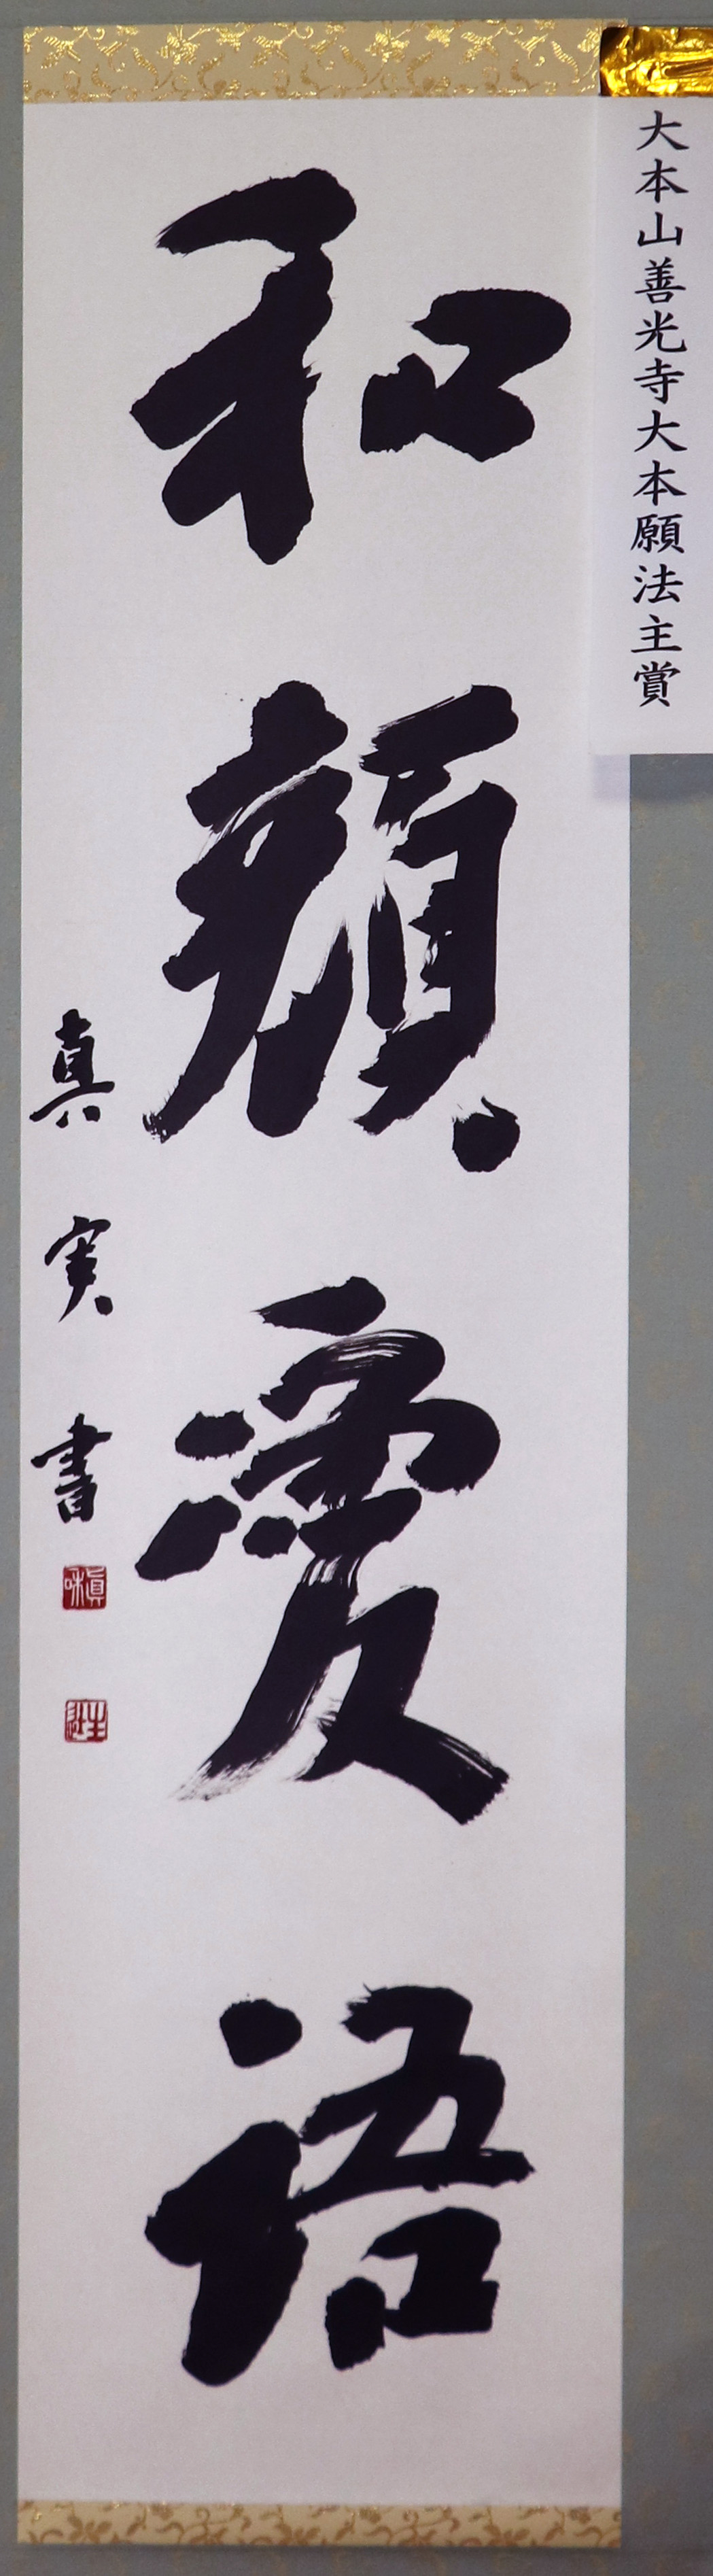 大本山善光寺大本願法主賞
和顔愛語
真実書